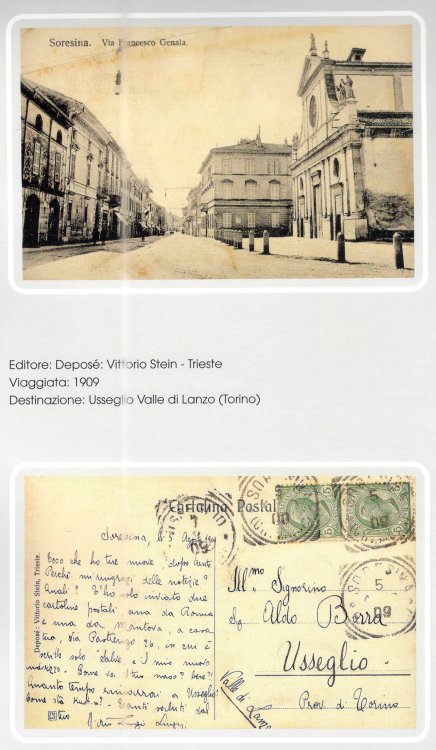 Soresina. Via Francesco Genala.
Editore: Deposé: Vittorio Stein - Trieste
Viaggiata: 1909
Destinazione: Usseglio Valle di Lanzo (Torino)
Cartolina Postal
Soresina, li 5 1909
Ecco che ho tue nuove dopo tanto
Perchè delle notizie?
Quali? E ho solo inviato due
cartoline postali una da Roma
e una da Mantova, a casa
tua, Via Pastrengo 26, in cui è
scritto solo Salve e il mio nuovo
Come va il tuo naso?
Quanto tempo rimarrai a Usseglio?
Come sta Tanti saluti dal
tuo Luigi
Deposé: Vittorio Stein, Trieste.
Ill.mo Signorino
Sg. Aldo Borra
Usseglio
Prov. di Torino
Valle di Lanzo
SORESINA
5
09